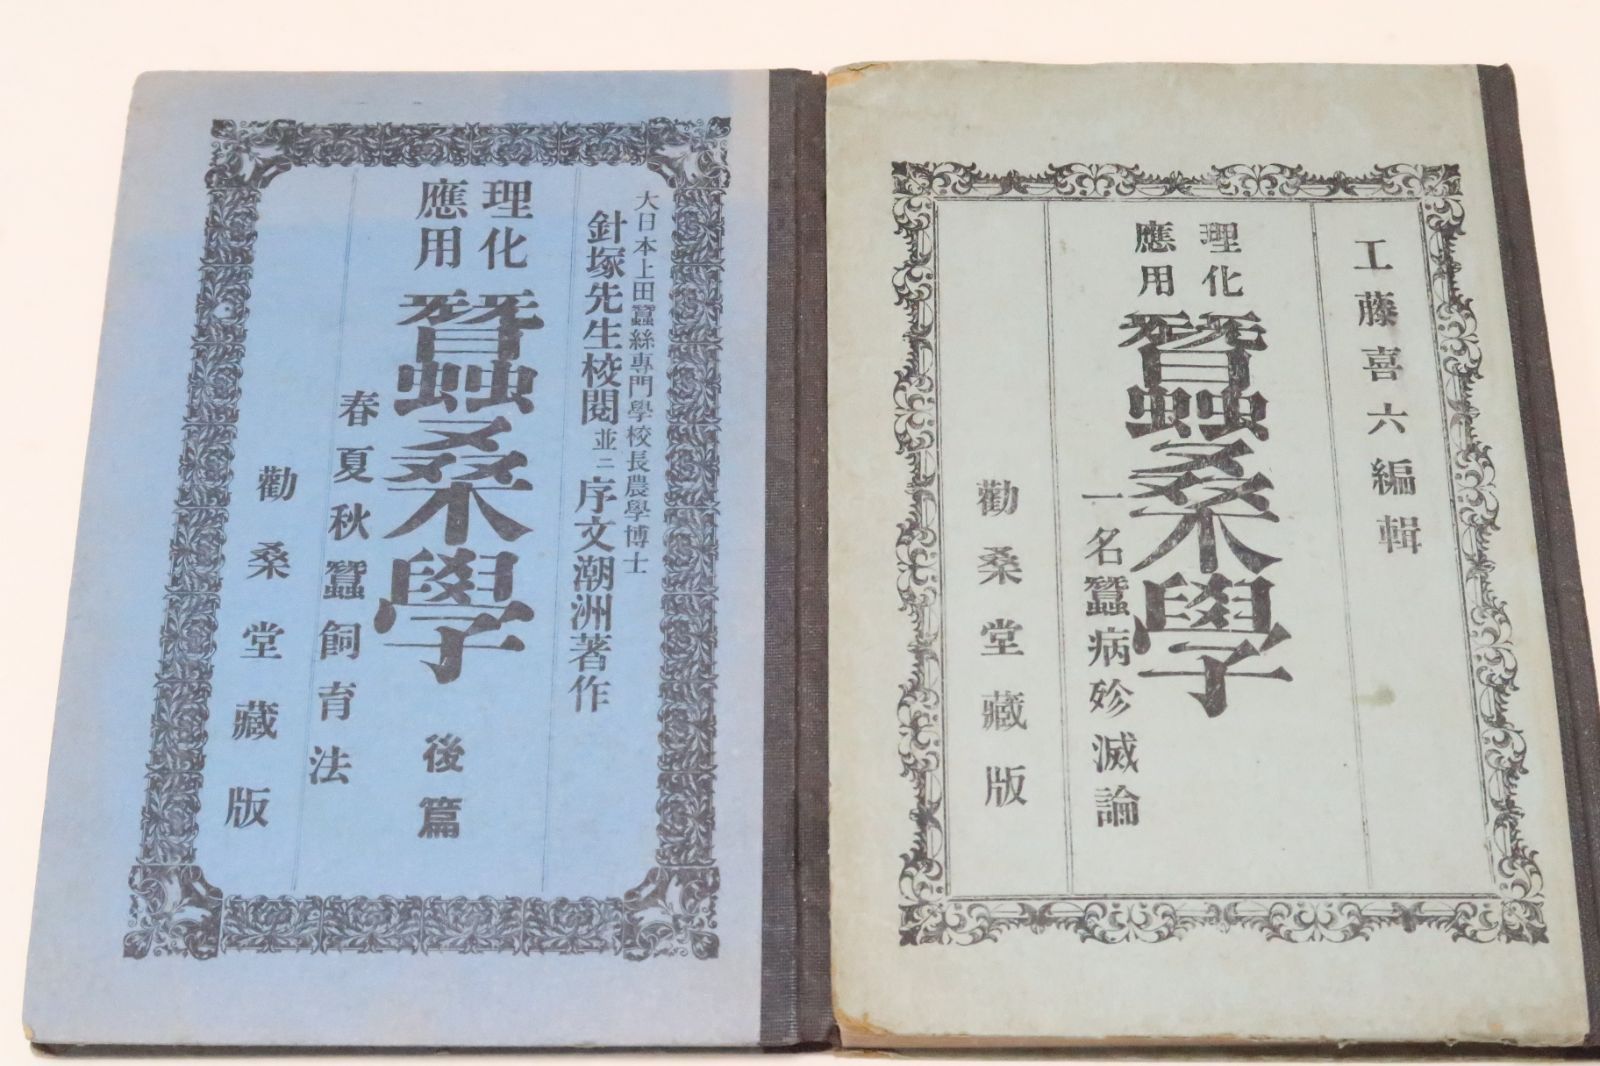 工藤喜六編輯
理化
應用
蠶桑學
一名蠶病殄滅論
勸桑堂藏版
大日本上田蠶絲專門學校長農學博士
針塚先生校閱並ニ序文潮洲著作
理化
應用
蠶桑學 後篇
春夏秋蠶飼育法
勸桑堂藏版